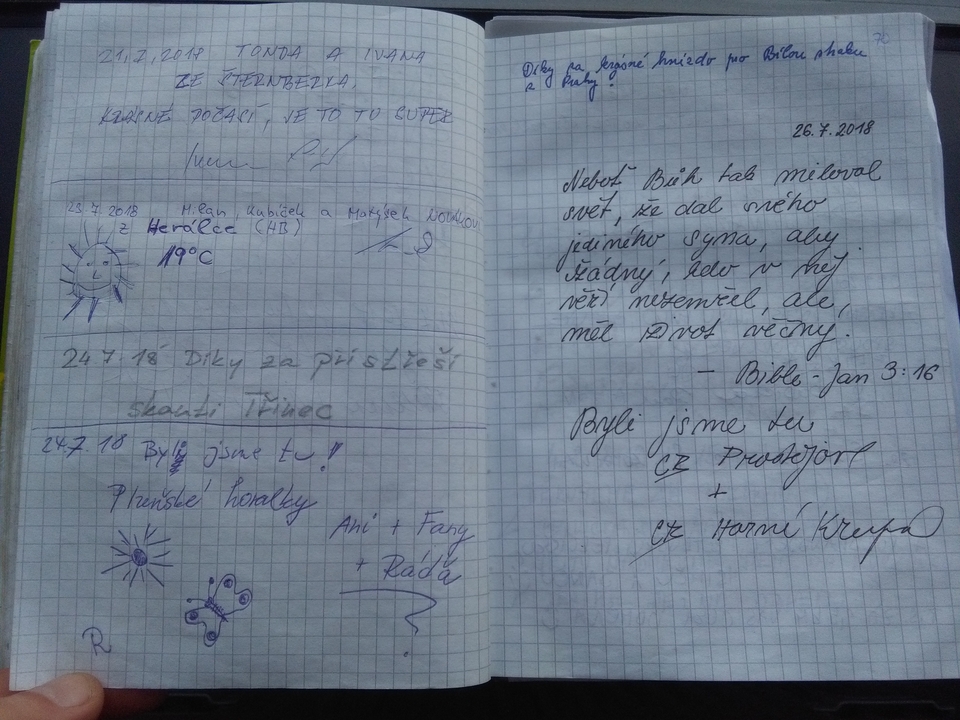 21.7.2018 TONDA A IVANA
ZE ŠTERNBERKA.
KRÁSNÉ POČASÍ, JE TO TU SUPER
23.7.2018 Milan, Kubíček a Matýsek Novákovi
z Herálce (HB)
19°C
24.7.18 Díky za přístřeší
skauti Třinec
24.7.18 Byli jsme tu!
Plzeňské horalky
Ani + Fany
+ Ráďa
R
70
Díky za krásné hnízdo pro Bílou
z Prahy!
26.7.2018
Neboť Bůh tak miloval
svět, že dal svého
jediného syna, aby
žádný, kdo v něj
věří nezemřel, ale,
měl život věčný.
- Bible - Jan 3:16
Byli jsme tu
CB Prostějov
+
CB Horní Krupá